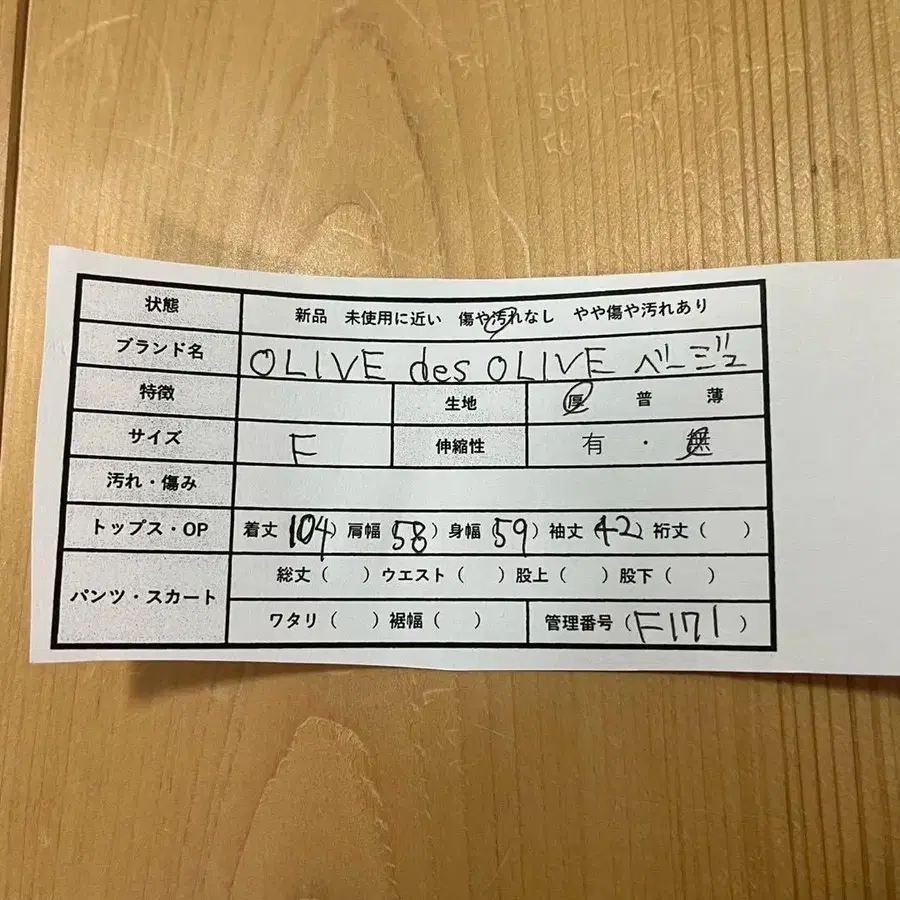 状態 新品 未使用に近い 傷や汚れなし やや傷や汚れあり
ブランド名 OLIVE des OLIVE ベージュ
特徴 生地 厚 普 薄
サイズ F 伸縮性 有 ・ 無
汚れ・傷み
トップス・OP 着丈 104) 肩幅 58) 身幅 59) 袖丈 42) 裄丈 ( )
パンツ・スカート 総丈 ( ) ウエスト ( ) 股上 ( ) 股下 ( )
ワタリ ( ) 裾幅 ( ) 管理番号 (F171)